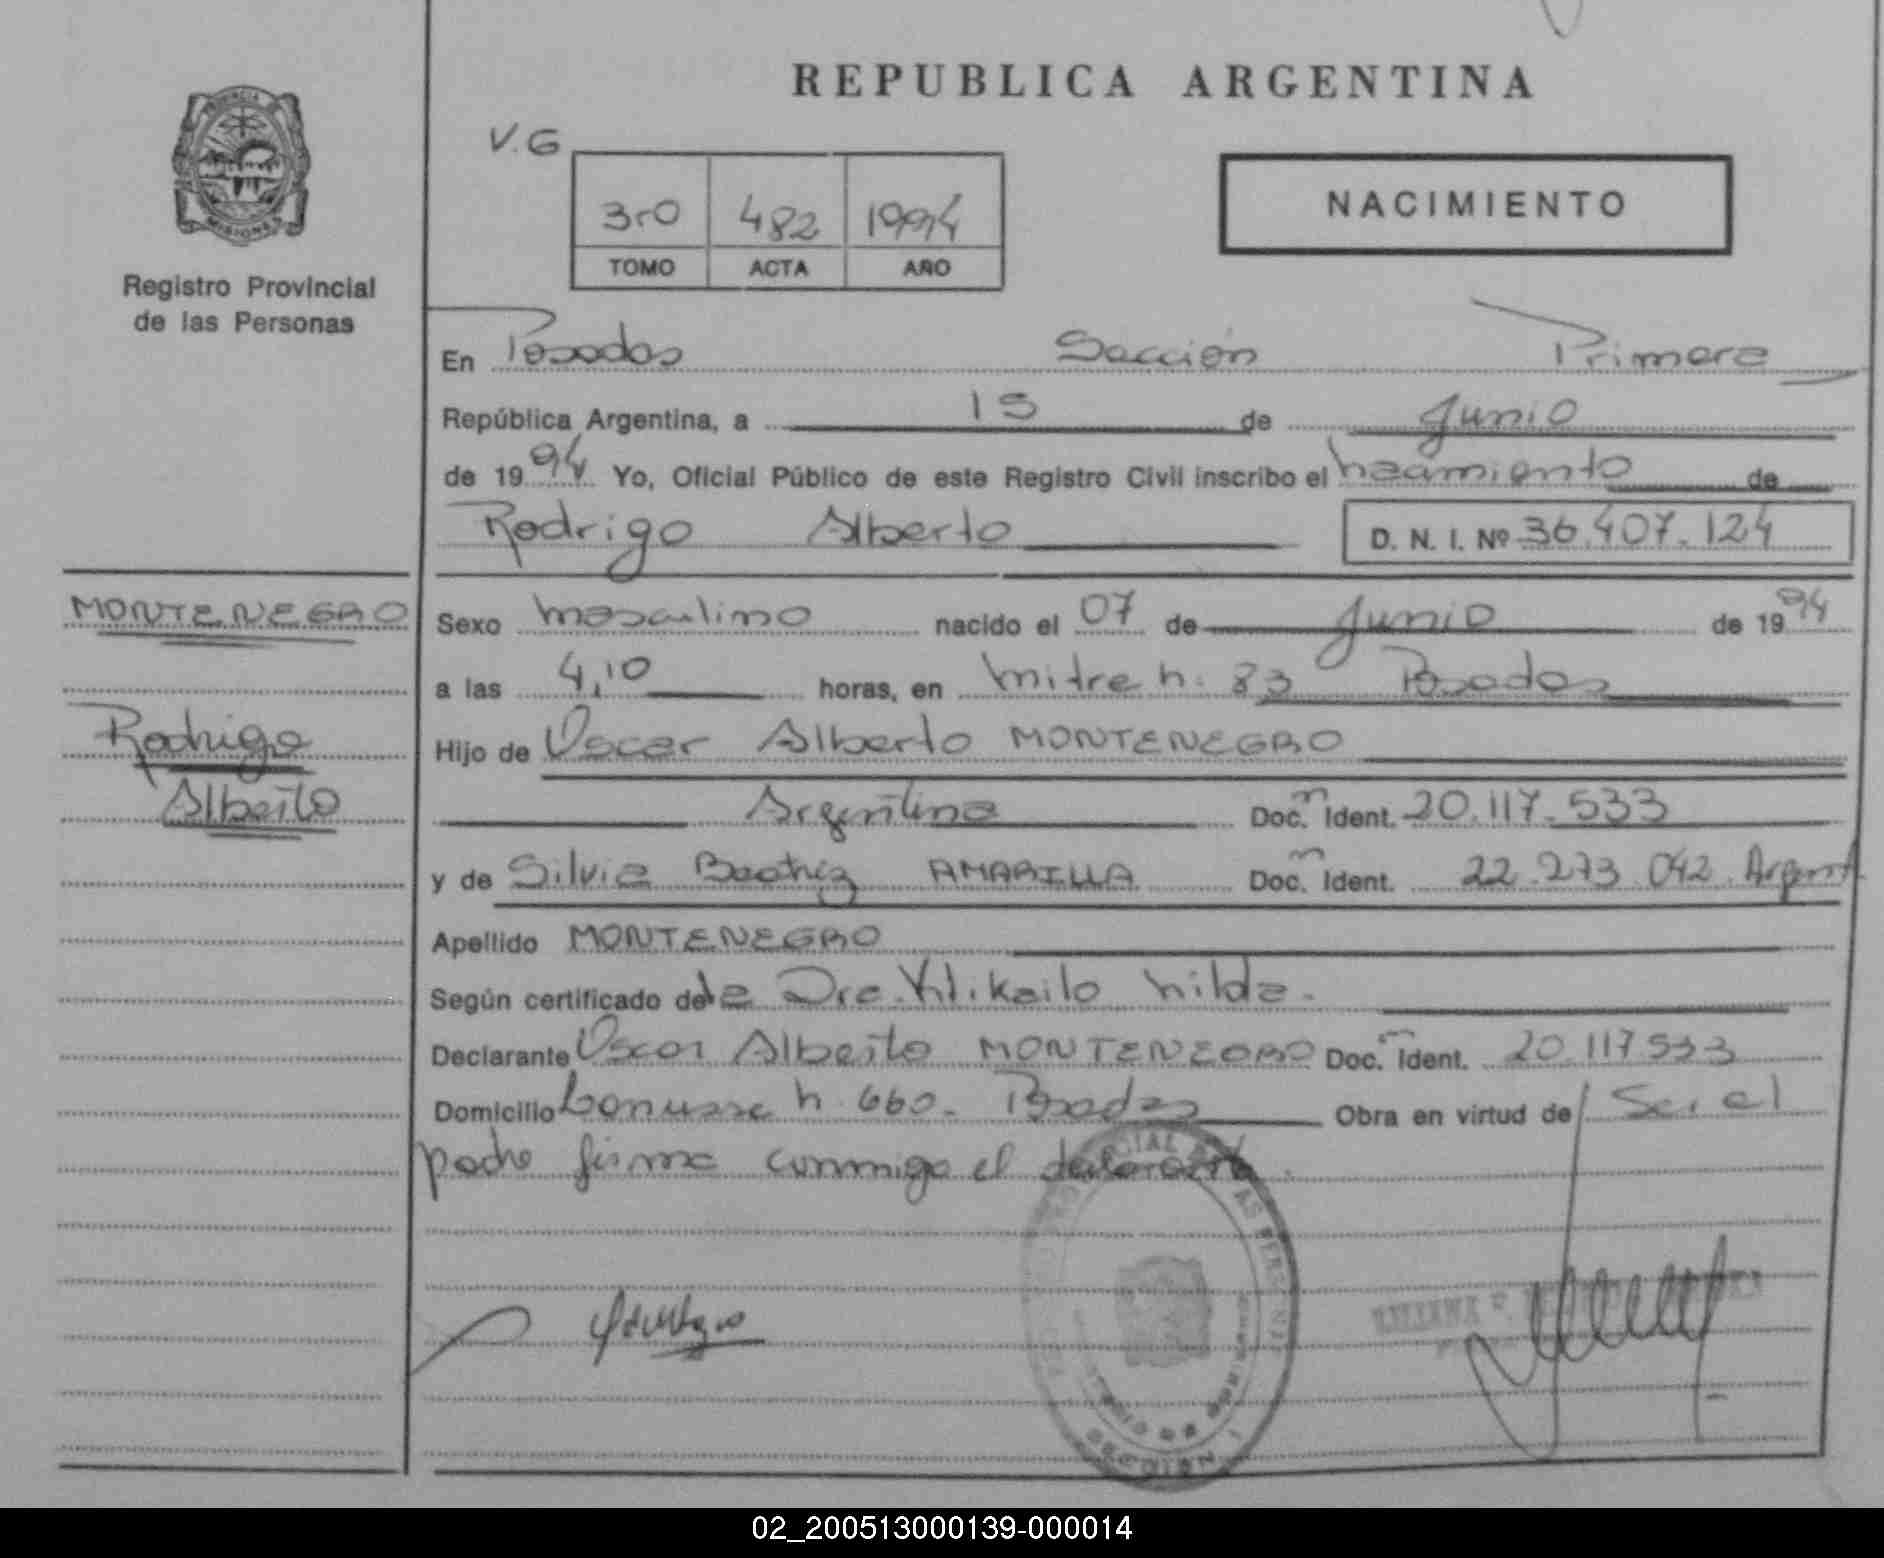 REPUBLICA ARGENTINA
V.G
3ro 482 1994
TOMO ACTA AÑO
NACIMIENTO
MISIONES
Registro Provincial
de las Personas
En Posadas Sección Primera
República Argentina, a 15 de Junio
de 1994 Yo, Oficial Público de este Registro Civil inscribo el nacimiento de
Rodrigo Alberto D. N. I. Nº 36.407.124
MONTENEGRO
Rodrigo
Alberto
Sexo masculino nacido el 07 de Junio de 1994
a las 4,10 horas, en mitre n. 83 Posadas
Hijo de Oscar Alberto MONTENEGRO
Argentina Doc. Ident. 20.117.533
y de Silvia Beatriz AMARILLA Doc. Ident. 22.273.042. Argent
Apellido MONTENEGRO
Según certificado de la Dra. hilda.
Declarante Oscar Alberto MONTENEGRO Doc. Ident. 20.117533
Domicilio n. 660. Posadas Obra en virtud de Ser el
padre firma conmigo el declarante.
SECCION 1
LILIANA
02_200513000139-000014